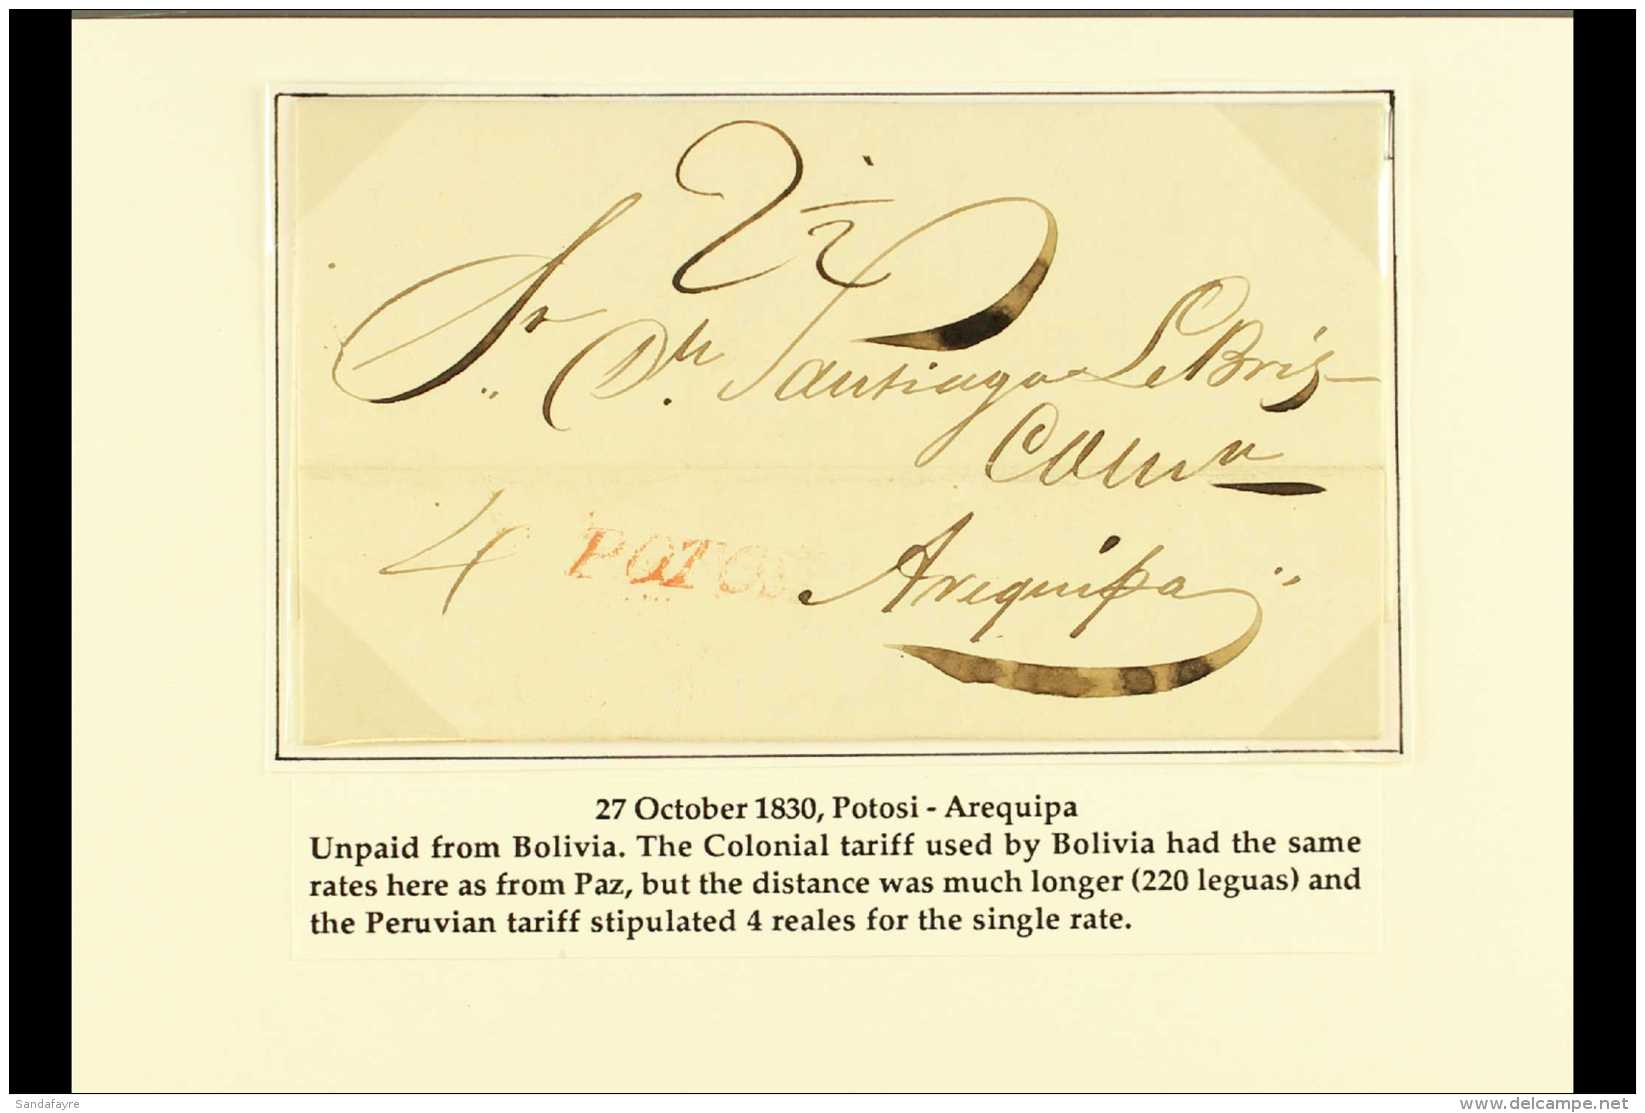 2 1/2
Sr. Dn. Santiago LeBris
Arequipa
4 POTOSI
27 October 1830, Potosi - Arequipa
Unpaid from Bolivia. The Colonial tariff used by Bolivia had the same
rates here as from Paz, but the distance was much longer (220 leguas) and
the Peruvian tariff stipulated 4 reales for the single rate.
Sandafayre
www.delcampe.net